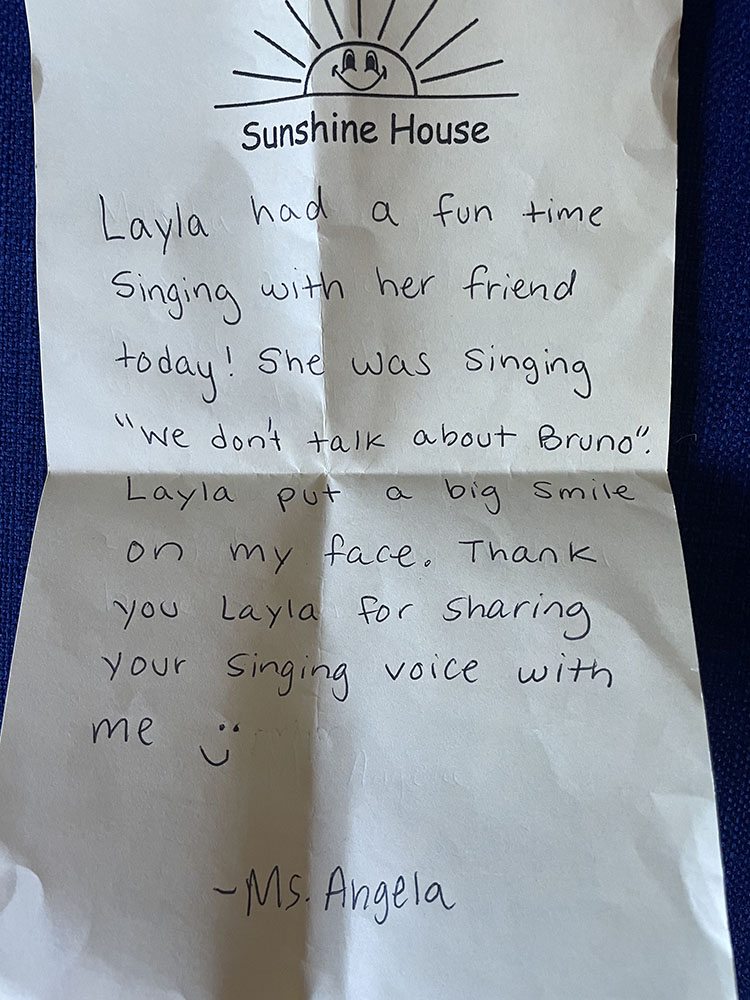 Sunshine House
Layla had a fun time
singing with her friend
today! She was singing
"We don't talk about Bruno".
Layla put a big smile
on my face. Thank
you Layla for sharing
your singing voice with
me
-Ms. Angela